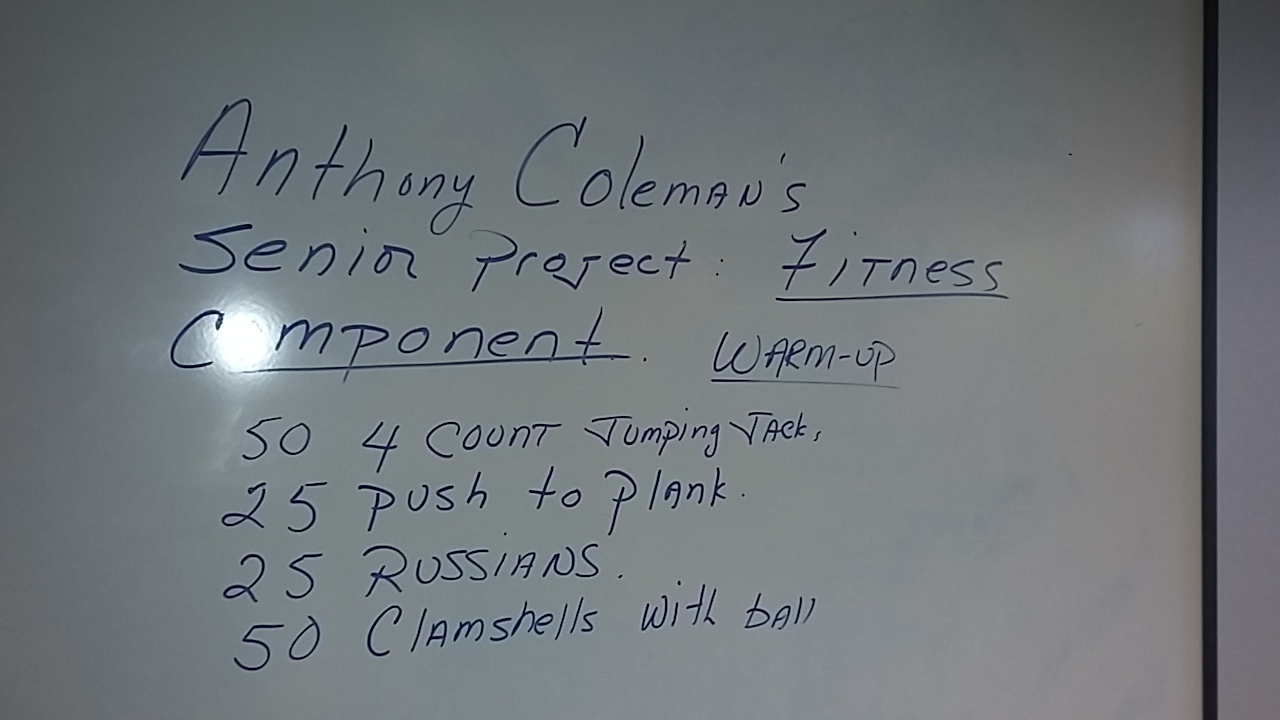 Anthony Coleman's
Senior Project: Fitness
Component. Warm-up
50 4 count Jumping Jack,
25 push to plank.
25 Russians.
50 Clamshells with ball